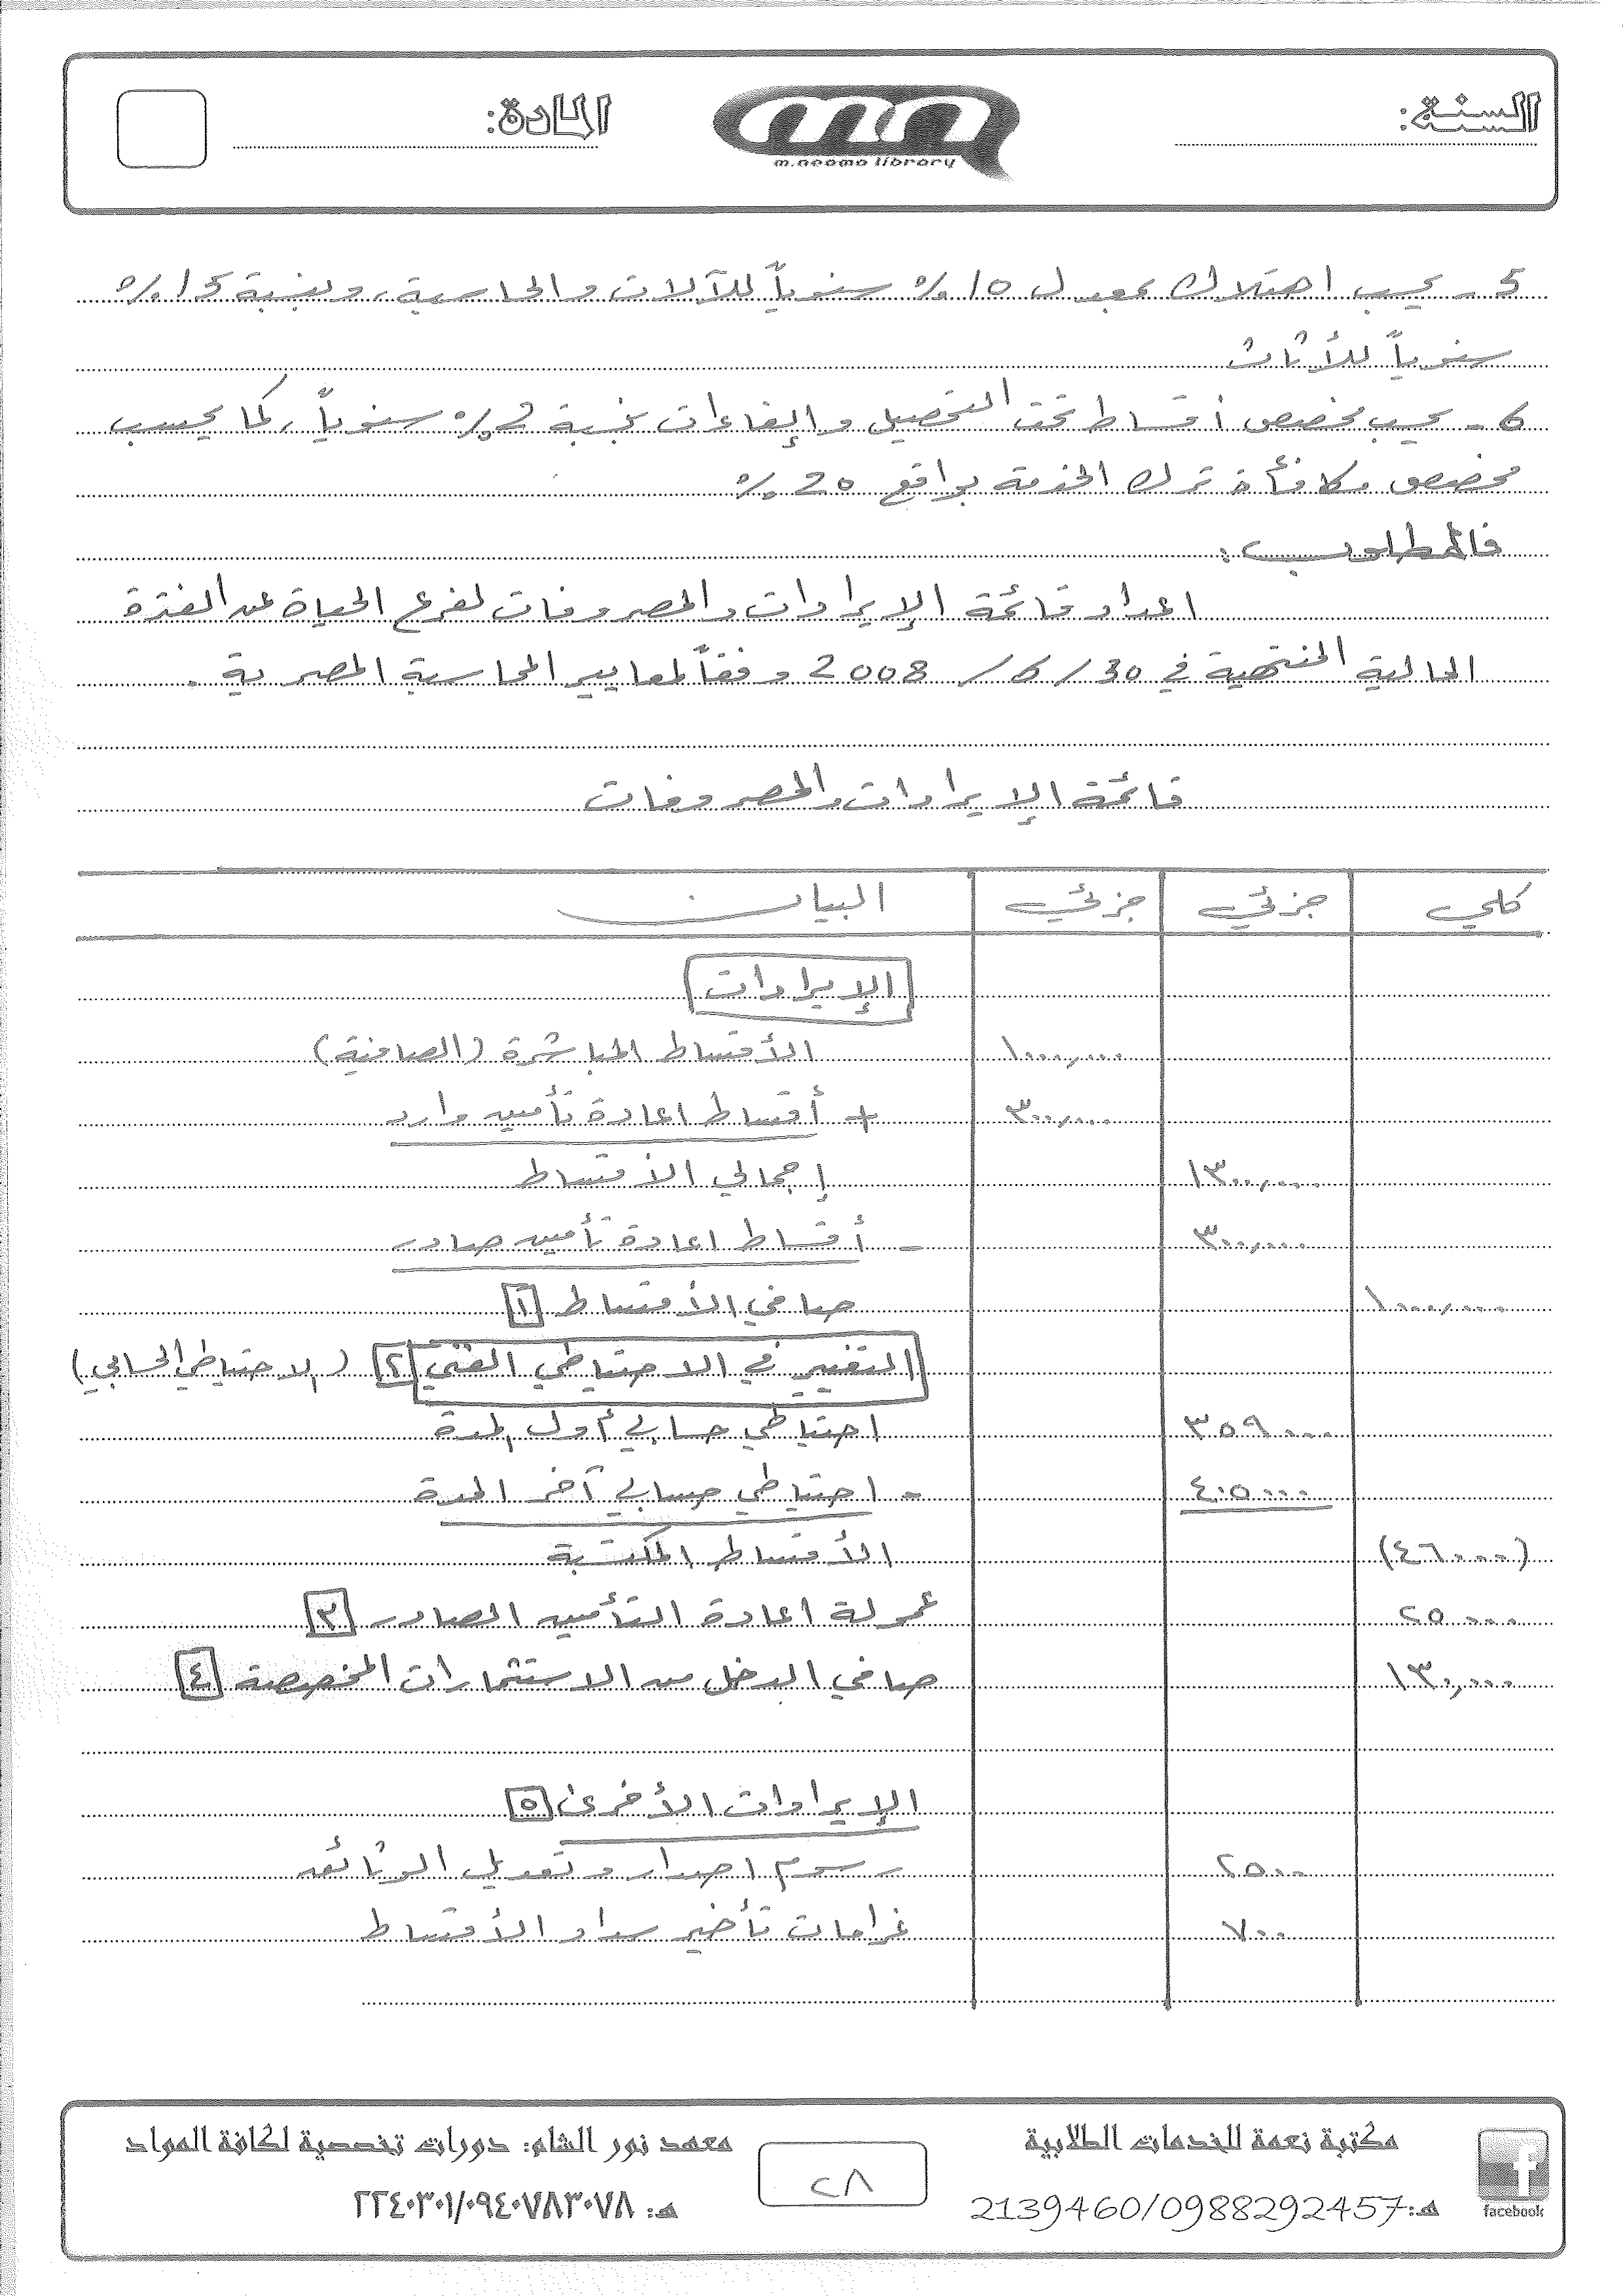 السنة:
m.neama library
المادة:
5 - يحسب اهتلاك بمعدل 10% سنوياً للآلات والحاسبة، وبنسبة 15%
سنوياً للأثاث
6 - يحسب مخصص أقساط تحت التحصيل وإلغاءات بنسبة 2% سنوياً، كما يحسب
مخصص مكافأة ترك الخدمة بواقع 20%
فالمطلوب:
اعداد قائمة الإيرادات والمصروفات لفرع الحياة عن الفترة
المالية المنتهية في 30/6/2008 وفقاً لمعايير المحاسبة المصرية.
قائمة الإيرادات والمصروفات
كلي جزئي جزئي البيان
الإيرادات
١٠٠٠,٠٠٠ الأقساط المباشرة (الصافية)
٣٠٠,٠٠٠ + أقساط اعادة تأمين وارد
١٣٠٠,٠٠٠ إجمالي الأقساط
٣٠٠,٠٠٠ - أقساط اعادة تأمين صادر
١٠٠٠,٠٠٠ صافي الأقساط ١
التغيير في الاحتياطي الفني ٢ (الاحتياطي الحسابي)
٣٥٩٠٠٠ احتياطي حسابي أول المدة
٤٠٥٠٠٠ - احتياطي حسابي آخر المدة
(٤٦٠٠٠) الأقساط المكتسبة
٢٥٠٠٠ عمولة اعادة التأمين الصادر ٣
١٣٠,٠٠٠ صافي الدخل من الاستثمارات المخصصة ٤
الإيرادات الأخرى ٥
٢٥٠٠ رسوم اصدار وتعديل الوثائق
٧٠٠ غرامات تأخير سداد الأقساط
facebook
مكتبة نعمة للخدمات الطلابية
هـ: 2139460/0988292457
٢٨
معهد نور الشام: دورات تخصصية لكافة المواد
هـ: ٢٢٤٠٣٠١/٠٩٤٠٧٨٣٠٧٨